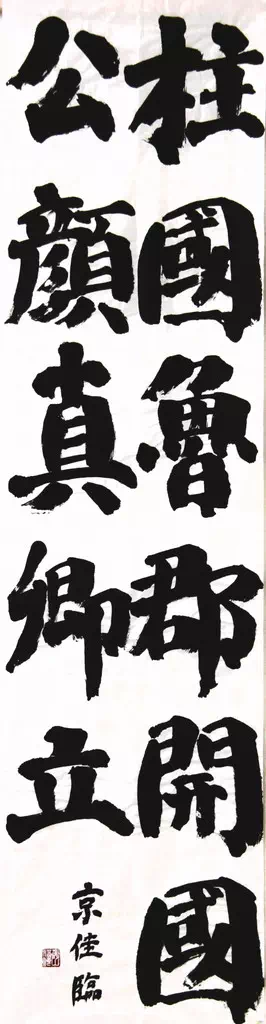 柱國魯郡開國
公顏真卿立
京佳臨